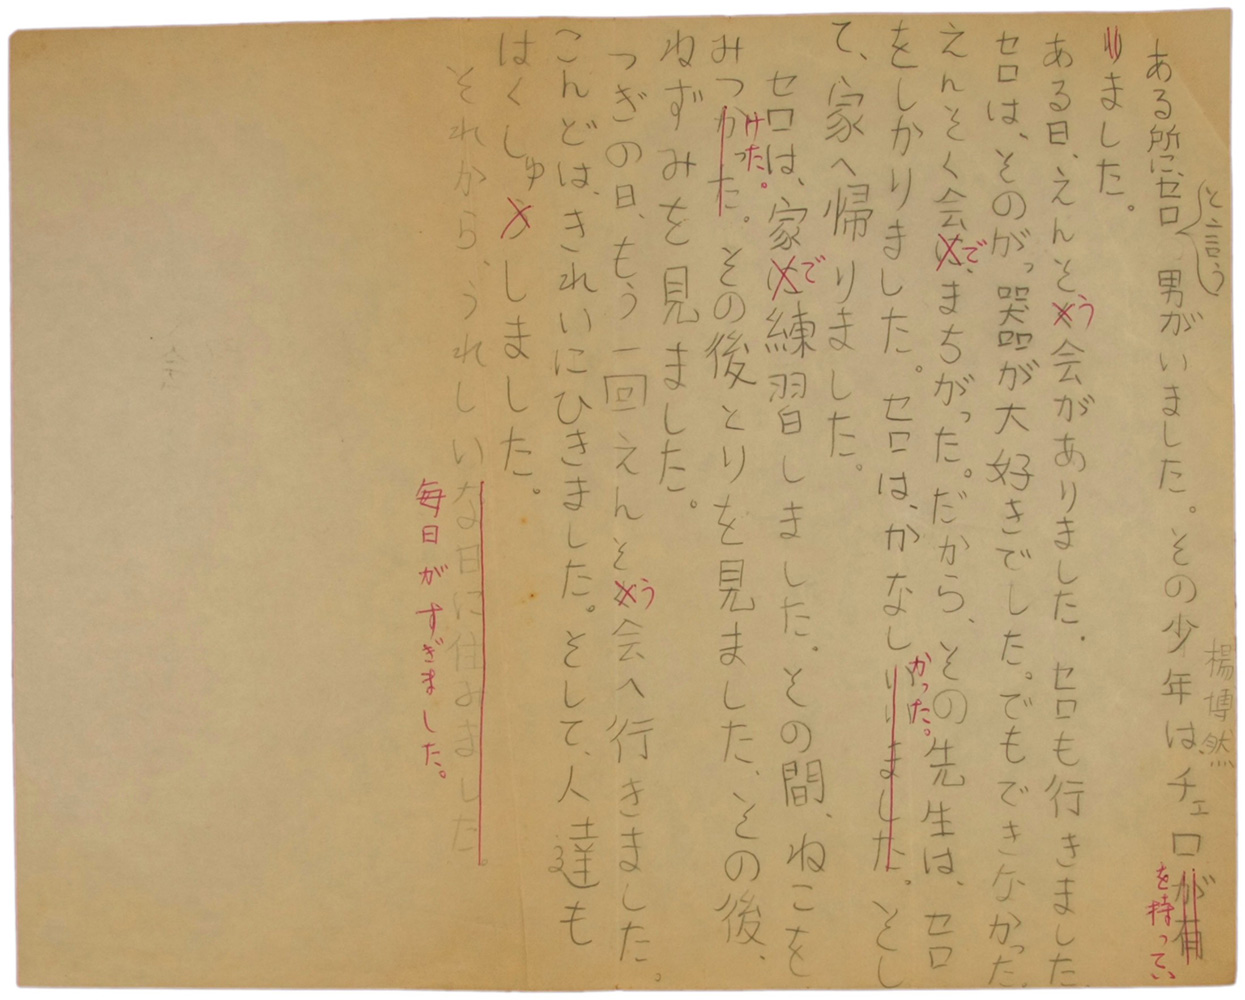 楊博然
ある所に、セロ男がいました。その少年は、チェロが有
と言う
を持ってい
りました。
ある日、えんそく会がありました。セロも行きました。
う
セロは、そのがっ器が大好きでした。でもできなかった。
えんそく会は、まちがった。だから、その先生は、セロ
で
をしかりました。セロは、かなしりました。そし
かった。
て、家へ帰りました。
セロは、家は練習しました。その間、ねこを
で
みつかった。その後とりを見ました、その後、
けた。
ねずみを見ました。
つぎの日、もう一回えんそく会へ行きました。
う
こんどは、きれいにひきました。そして、人達も
はくしゅうしました。
それから、うれしいな日に住みました。
毎日がすぎました。
会